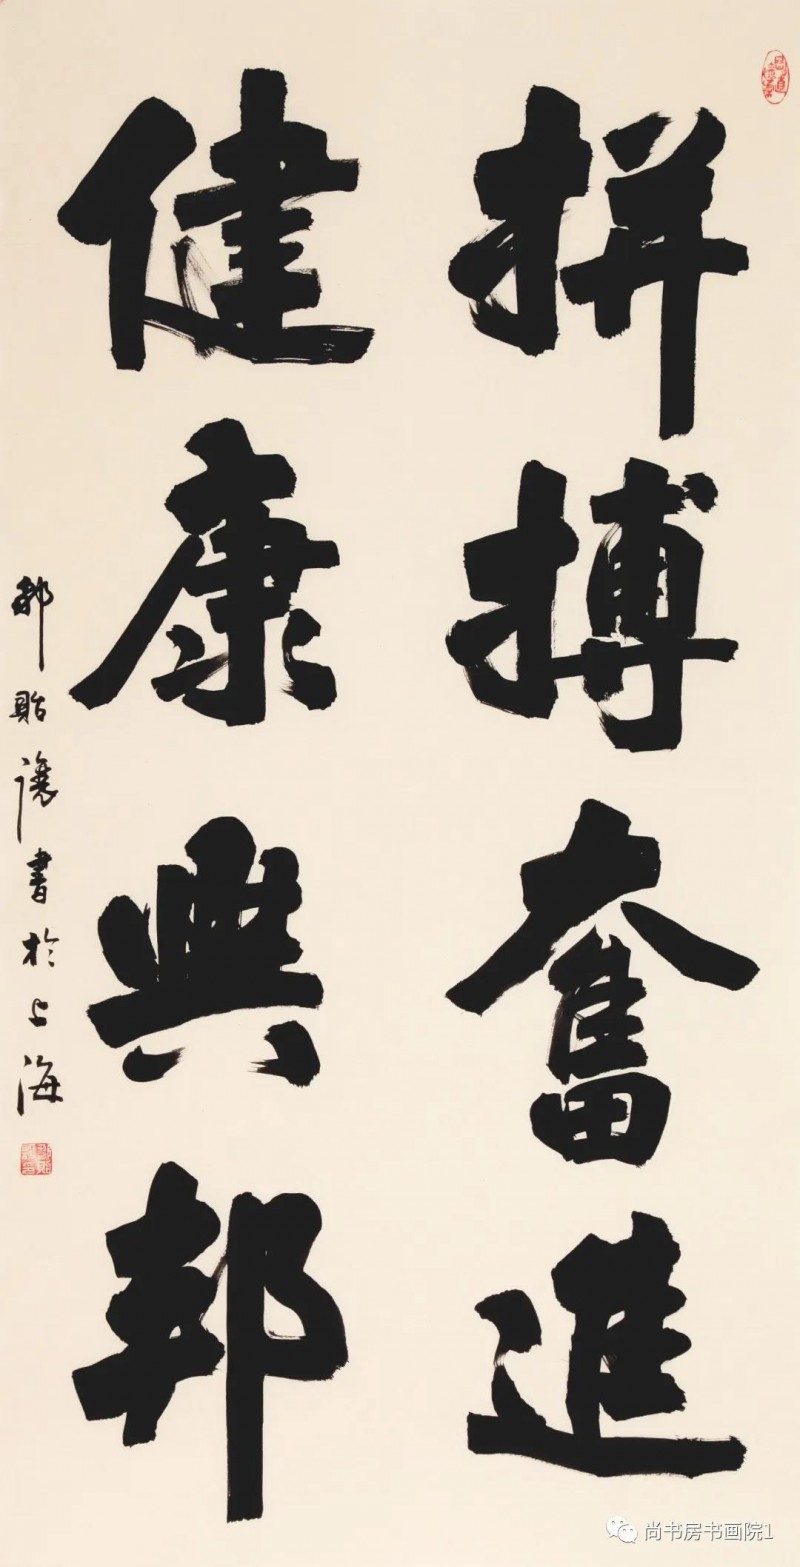 拼搏奮進
健康興邦
郝貽讓書於上海
尚书房书画院1